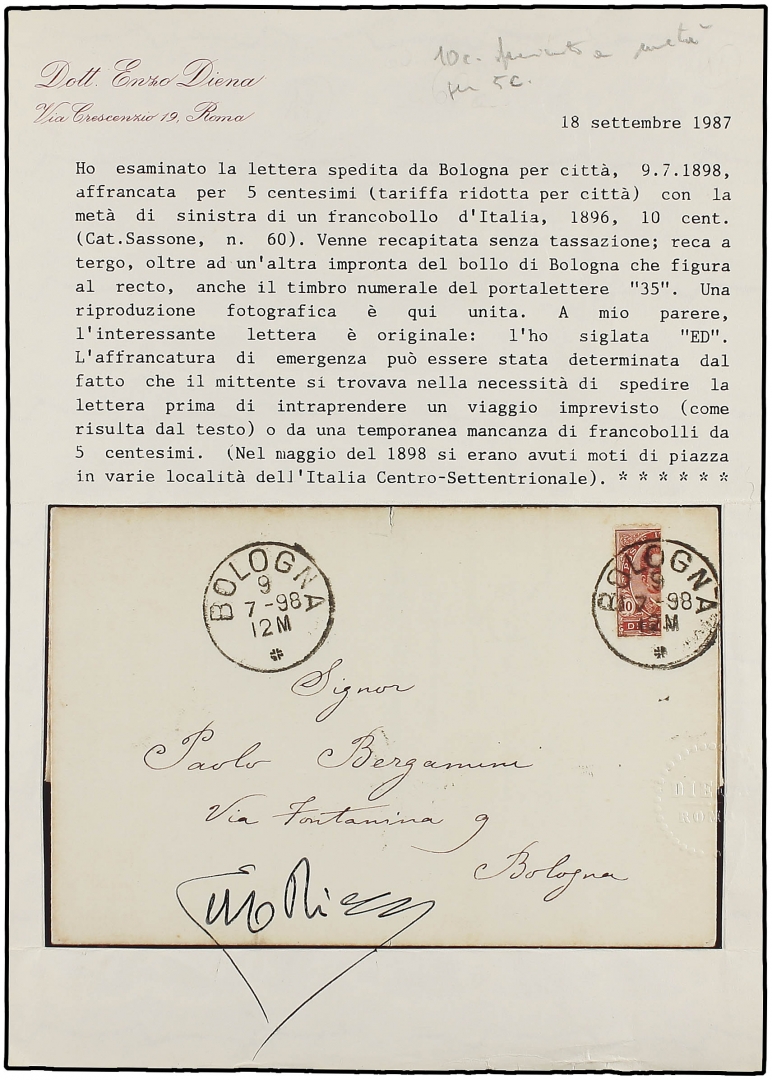 10c.
per 5c.
Dott. Enzo Diena
Via Crescenzio 19, Roma
18 settembre 1987
Ho esaminato la lettera spedita da Bologna per città, 9.7.1898,
affrancata per 5 centesimi (tariffa ridotta per città) con la
metà di sinistra di un francobollo d'Italia, 1896, 10 cent.
(Cat.Sassone, n. 60). Venne recapitata senza tassazione; reca a
tergo, oltre ad un'altra impronta del bollo di Bologna che figura
al recto, anche il timbro numerale del portalettere "35". Una
riproduzione fotografica è qui unita. A mio parere,
l'interessante lettera è originale: l'ho siglata "ED".
L'affrancatura di emergenza può essere stata determinata dal
fatto che il mittente si trovava nella necessità di spedire la
lettera prima di intraprendere un viaggio imprevisto (come
risulta dal testo) o da una temporanea mancanza di francobolli da
5 centesimi. (Nel maggio del 1898 si erano avuti moti di piazza
in varie località dell'Italia Centro-Settentrionale). * * * * * *
BOLOGNA
9
7-98
12M
BOLOGNA
9
7-98
12M
10
DIE
Signor
Paolo Bergamini
Via Fontanina 9
Bologna